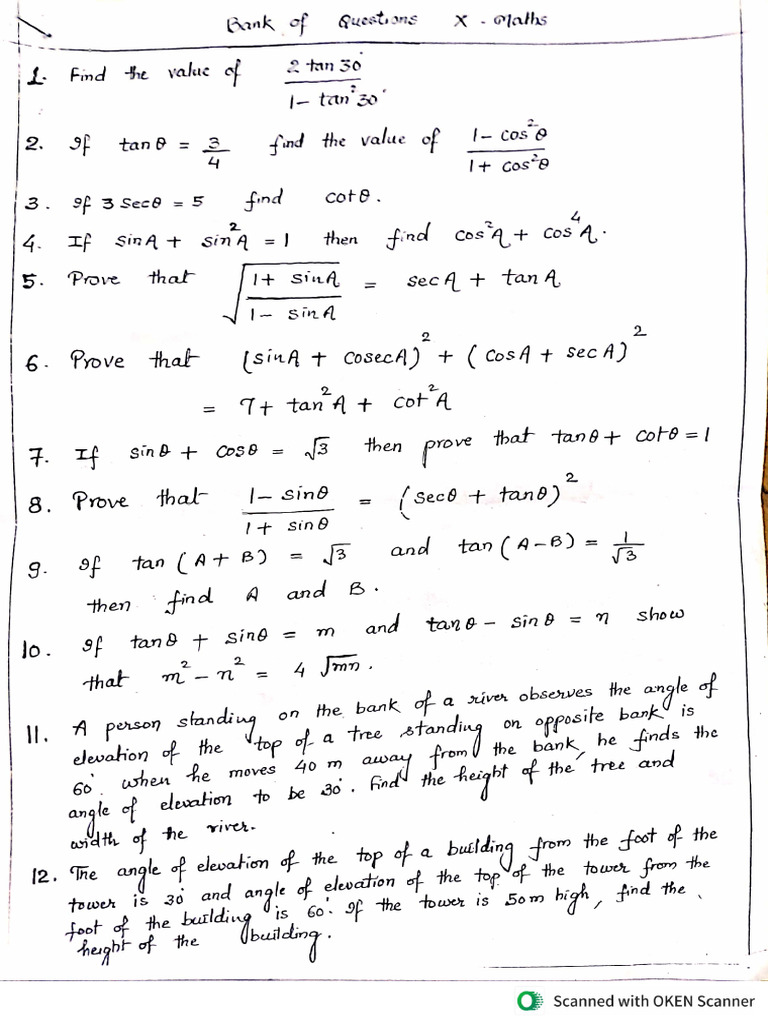 Bank of Questions X - Maths
1. Find the value of 2 tan 30° / 1 - tan²30°
2. If tan θ = 3/4 find the value of 1 - cos²θ / 1 + cos²θ
3. If 3 secθ = 5 find cotθ.
4. If sinA + sin²A = 1 then find cos²A + cos⁴A.
5. Prove that √(1 + sinA / 1 - sinA) = secA + tanA
6. Prove that (sinA + cosecA)² + (cosA + secA)²
= 7 + tan²A + cot²A
7. If sinθ + cosθ = √3 then prove that tanθ + cotθ = 1
8. Prove that 1 - sinθ / 1 + sinθ = (secθ + tanθ)²
9. If tan (A + B) = √3 and tan (A - B) = 1/√3
then find A and B.
10. If tanθ + sinθ = m and tanθ - sinθ = n show
that m² - n² = 4 √mn.
11. A person standing on the bank of a river observes the angle of
elevation of the top of a tree standing on opposite bank is
60°. when he moves 40 m away from the bank, he finds the
angle of elevation to be 30°. Find the height of the tree and
width of the river.
12. The angle of elevation of the top of a building from the foot of the
tower is 30° and angle of elevation of the top of the tower from the
foot of the building is 60°. If the tower is 50m high, find the
height of the building.
Scanned with OKEN Scanner